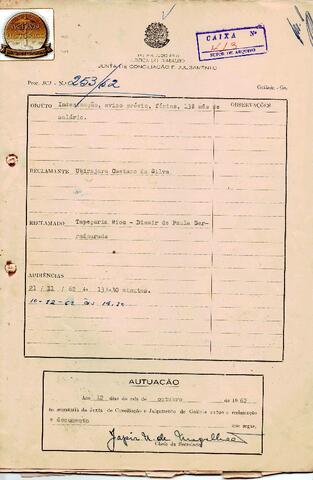 PODER JUDICIÁRIO
JUSTIÇA DO TRABALHO
JUNTA DE CONCILIAÇÃO E JULGAMENTO
CAIXA Nº
SETOR DE ARQUIVO
Proc. JCJ - N.º 253/62
Goiânia - Go.
OBJETO Indenização, aviso prévio, férias, 13º mês de salário.
OBSERVAÇÕES
RECLAMANTE Ubirajara Caetano da Silva
RECLAMADO Tapeçaria Rios - Dio de Paula
AUDIÊNCIAS
21 / 11 / 62 às 13:30 minutos.
10-12-62 às 14,30
AUTUAÇÃO
Aos 12 dias do mês de outubro de 1962
na secretaria da Junta de Conciliação e Julgamento de Goiânia autuo a reclamação
e documento que segue.
Chefe da Secretaria